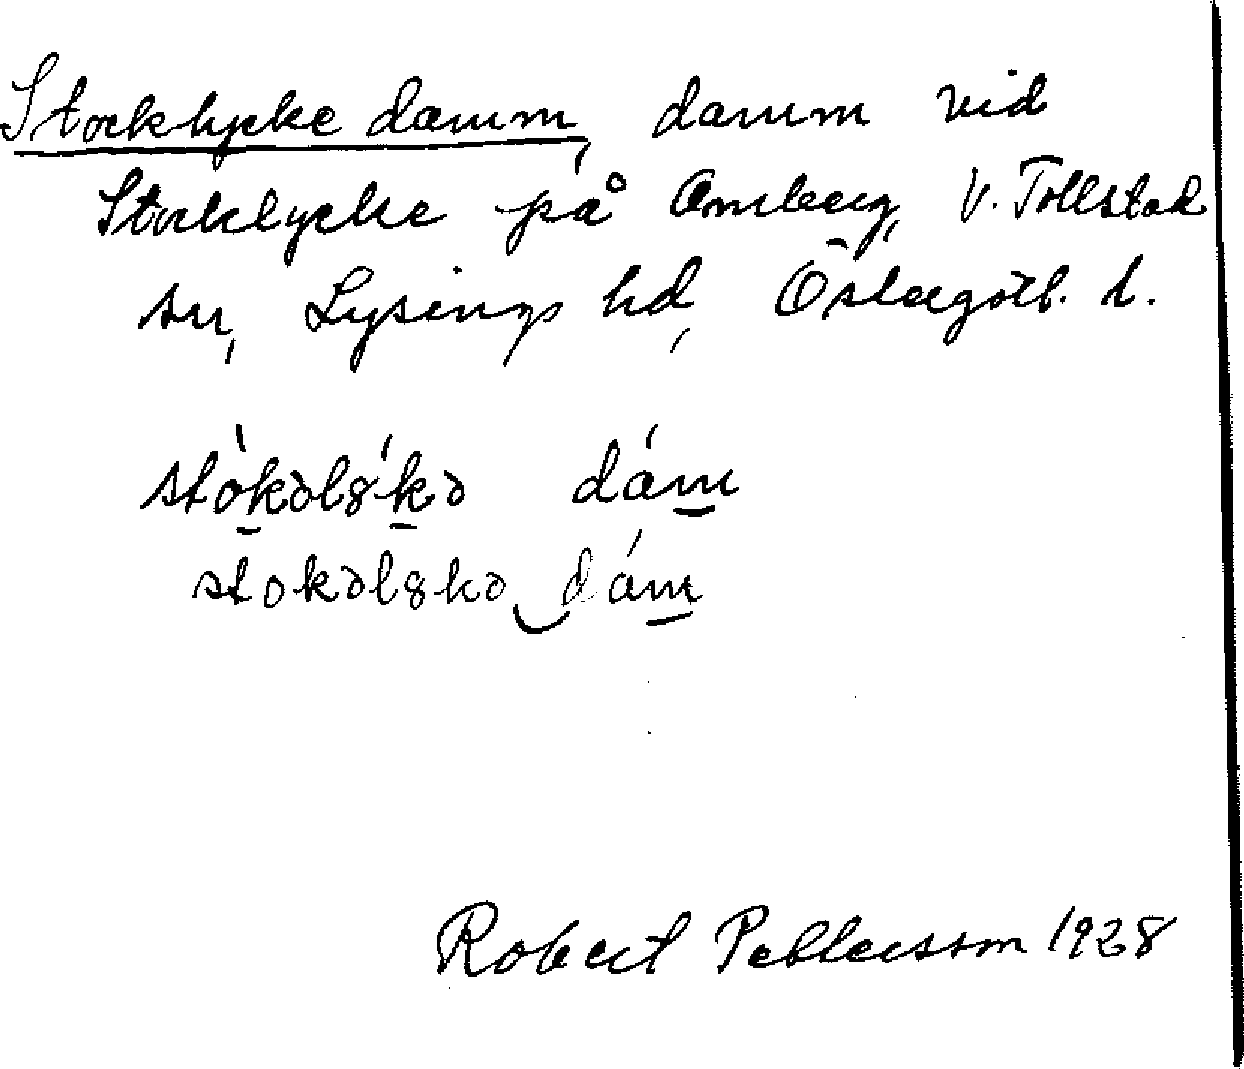 Stocklycke damm, damm vid
Stocklycke på Omberg, V. Tollstad
sn, Lysings hd, Östergötl. l.
stókəlȣ́kə dám
stokəlȣkə‿dám
Robert Pettersson 1928